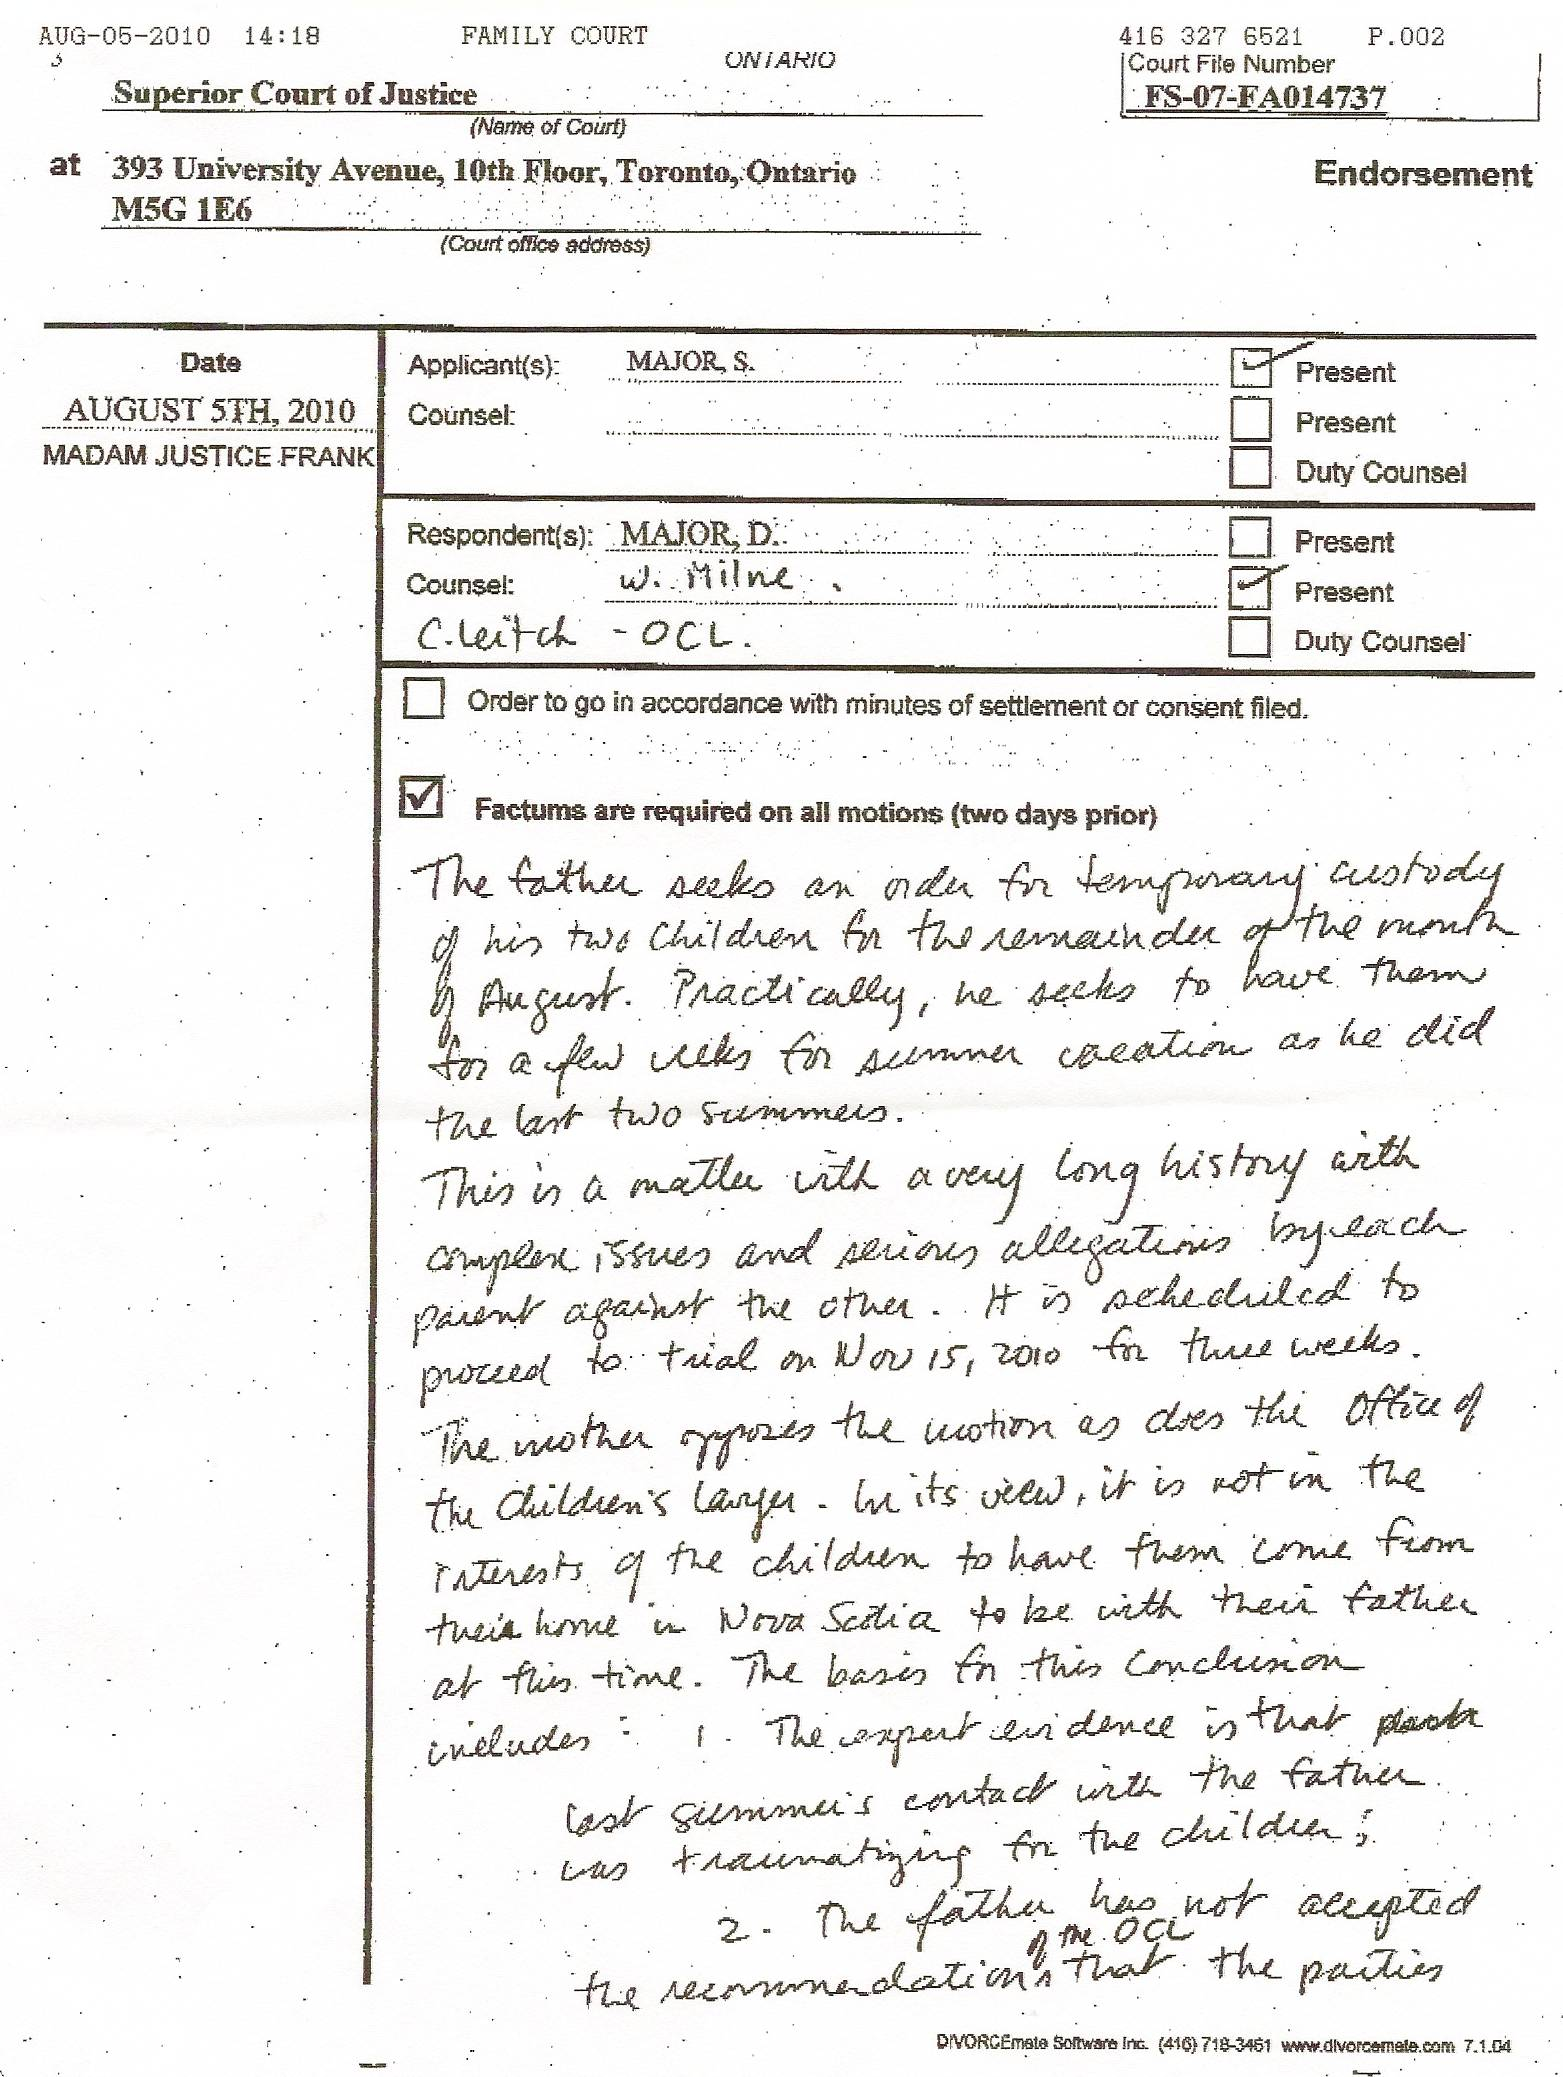 AUG-05-2010 14:18 FAMILY COURT 416 327 6521 P.002
ONTARIO
Court File Number
Superior Court of Justice
FS-07-FA014737
(Name of Court)
at 393 University Avenue, 10th Floor, Toronto, Ontario
Endorsement
M5G 1E6
(Court office address)
Date
AUGUST 5TH, 2010
MADAM JUSTICE FRANK
Applicant(s): MAJOR, S. Present
Counsel: Present
Duty Counsel
Respondent(s): MAJOR, D. Present
Counsel: W. Milne . Present
C. Leitch - OCL. Duty Counsel
Order to go in accordance with minutes of settlement or consent filed.
Factums are required on all motions (two days prior)
The father seeks an order for temporary custody
of his two children for the remainder of the month
of August. Practically, he seeks to have them
for a few weeks for summer vacation as he did
the last two summers.
This is a matter with a very long history with
complex issues and serious allegations by each
parent against the other. It is scheduled to
proceed to trial on Nov 15, 2010 for three weeks.
The mother opposes the motion as does the Office of
the Children's Lawyer. In its view, it is not in the
interests of the children to have them come from
their home in Nova Scotia to be with their father
at this time. The basis for this conclusion
includes : 1. The expert evidence is that
last summer's contact with the father
was traumatizing for the children;
2. The father has not accepted
of the OCL
the recommendations that the parties
DIVORCEmate Software Inc. (416) 718-3461 www.divorcemate.com 7.1.04